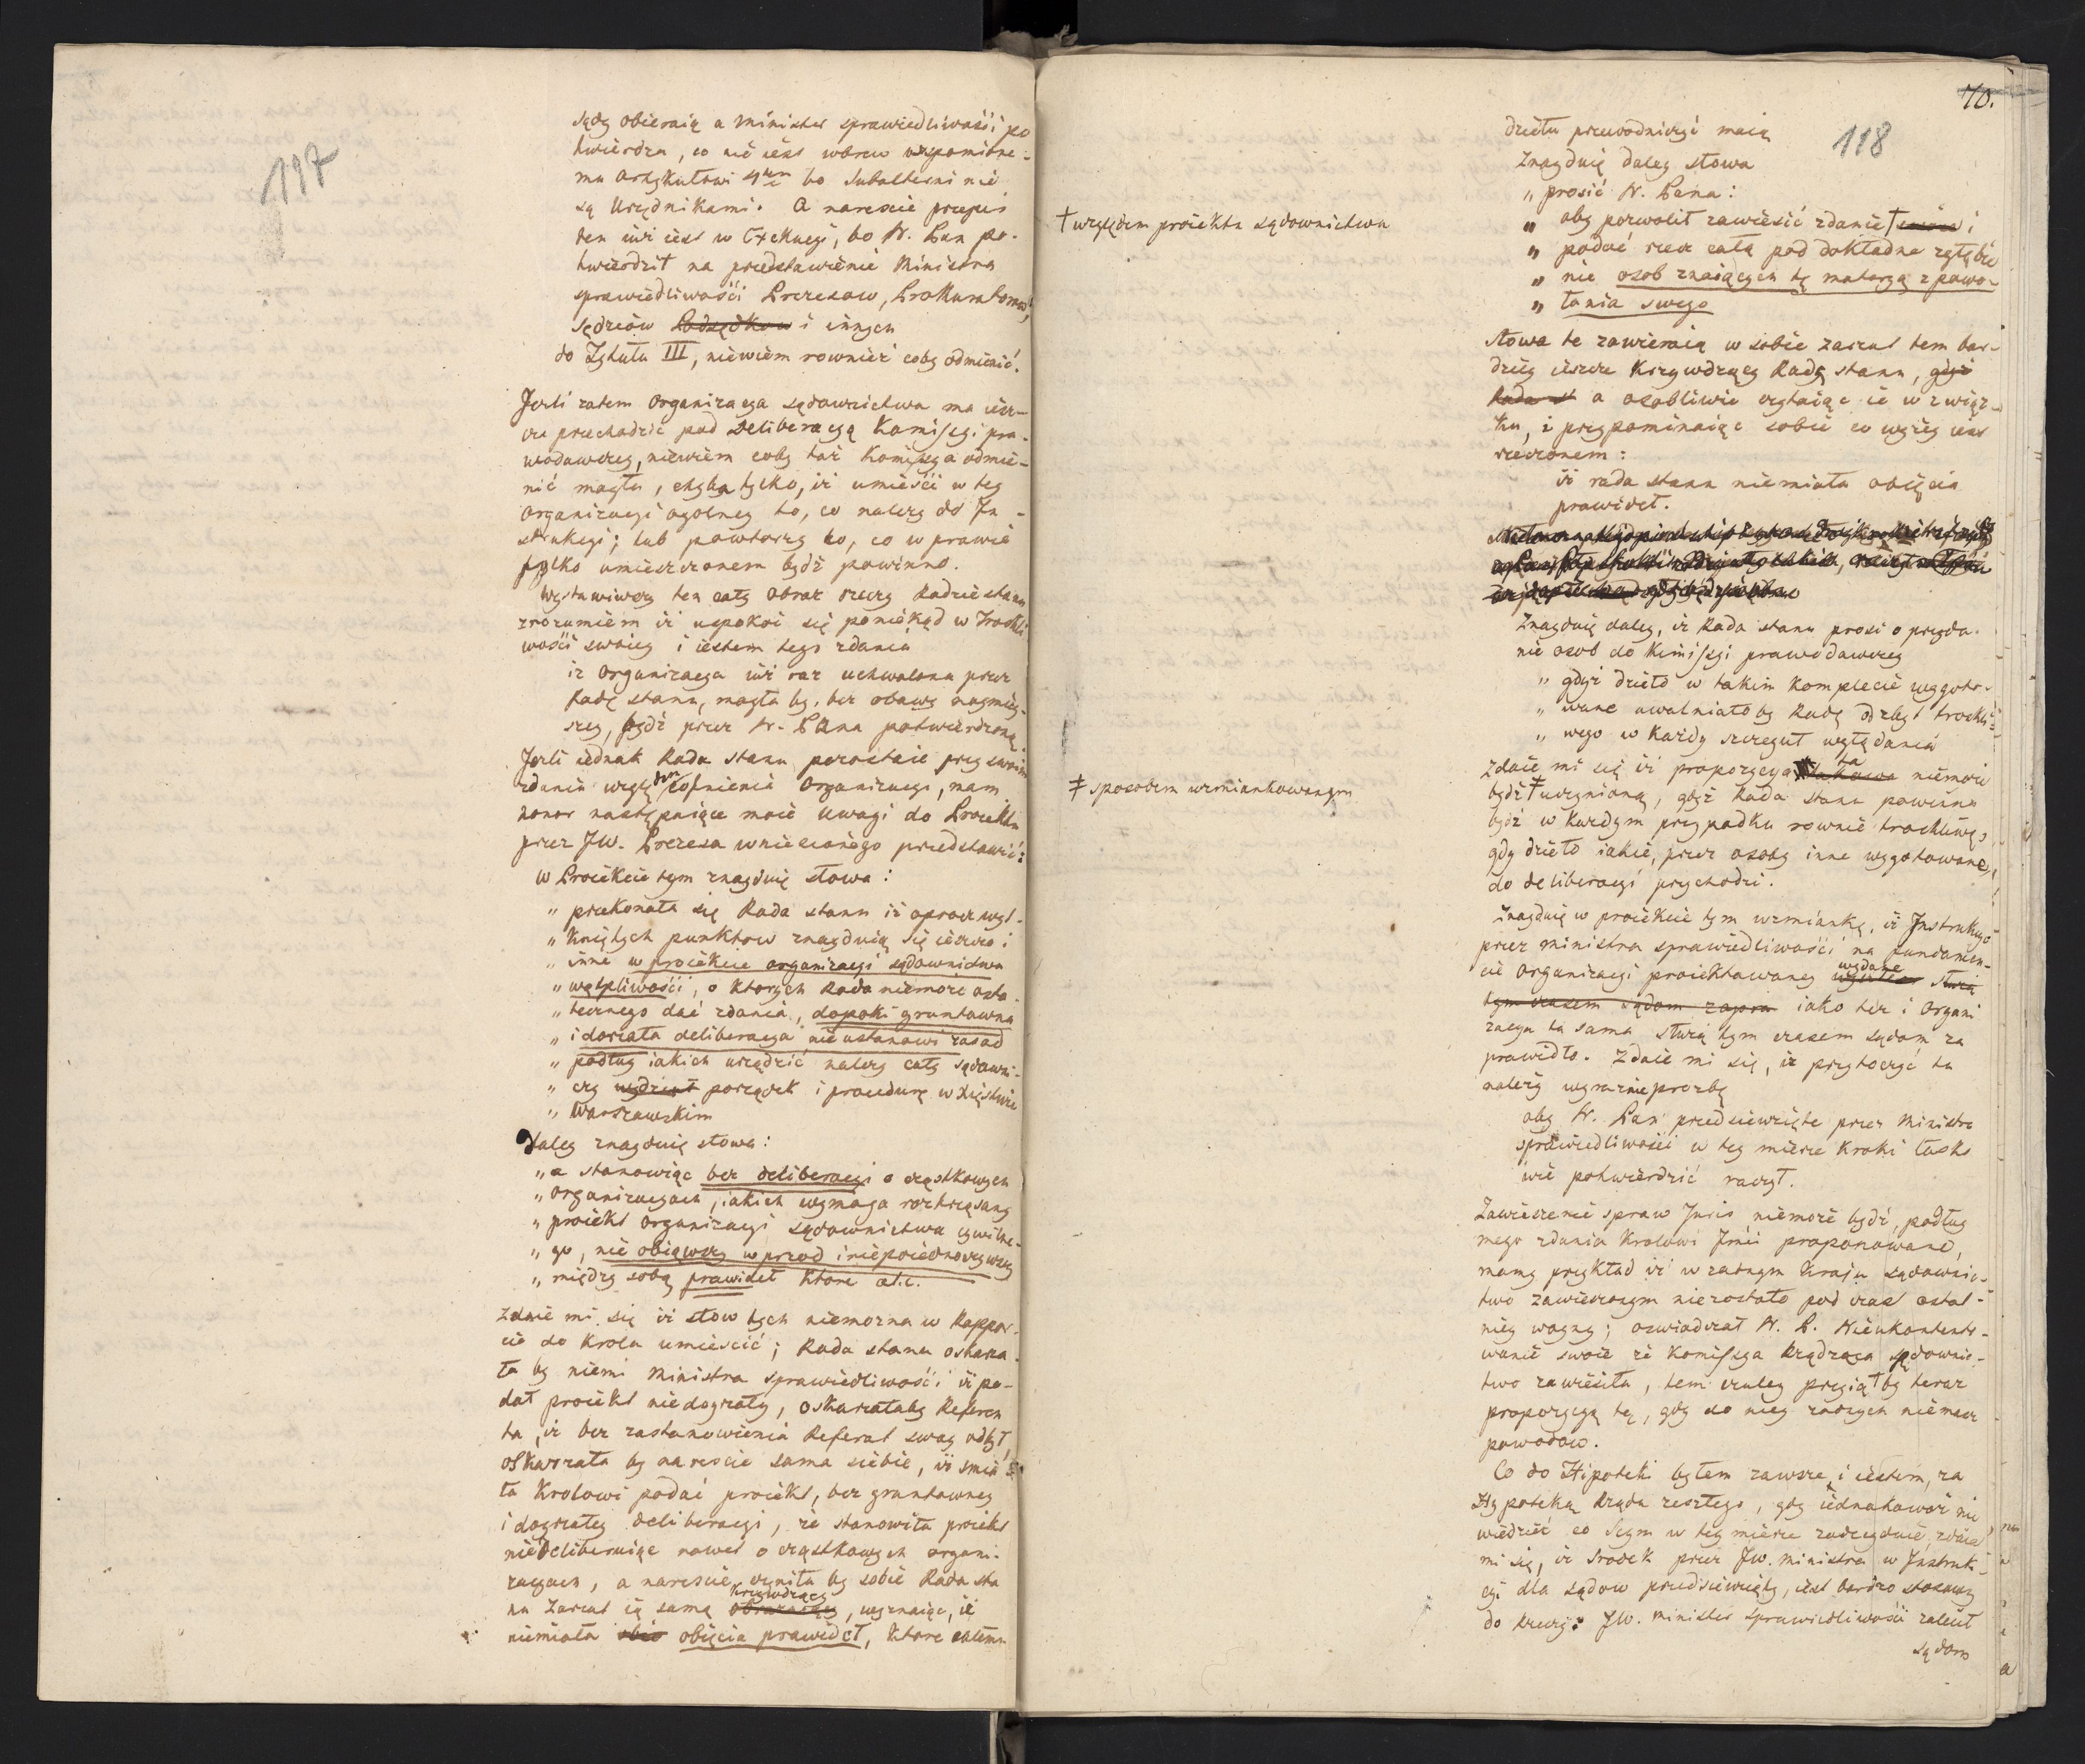 117
sądy obieraią a Minister sprawiedliwości po
twierdza, co nié iest wbrew wspomione-
mu Artykułowi 4tem bo Subalterni nié
są Urzędnikami. A narescie przepis
ten iuż iest w Exekucyi, bo N. Pan po-
twierdził na przedstawienié Ministra
sprawiedliwości Prezesow, Prokuratorow,
Sędziów Podsędkow i innych
do Tytułu III, niéwiém rownież coby odmienić.
Jeśli zatem Organizacya sądownictwa ma iész-
cze przechodzić pod deliberacyą Komissyi pra-
wodawczey, niéwiém coby taż Komissya odmié-
nić mogła, chyba tylko, iż umiéści w tey
Organizacyi ogolney to, co należy do In-
strukcyi; lub powtorzy to, co w prawié
tylko umieszczonem bydź powinno.
Wystawiwszy ten cały obraz rzeczy Radzié stanu
rozumiém iż uspokoi się poniékąd w Troskli
wości swoiey i iéstem tego zdania
iż Organizacya iuż raz uchwalona przez
Radę stanu, mogła by, bez obawy naymniéy-
szey, bydź przez N. Pana potwierdzoną.
Jeśli iednak Rada stanu pozostaie przy swoim
zdaniu względem cofnienia Organizacyi, mam
honor następuiące moié uwagi do Proiektu
przez JW. Prezesa wniesionégo przedstawić:
w Proiékcie tym znayduię słowa:
" przekonała się Rada stanu iż oprocz wyt-
" kniętych punktow znayduią się iészcze i
" inné w proiékcie organizacyi sądownictwa
" wątpliwości, o ktorych Rada niémoże osta-
" tecznego dać zdania, dopoki gruntowna
" i doyrzała deliberacya nié ustanowi zasad
" podług iakich urządzić należy cały sądowni-
" czy wydział porządek i procedurę w Xięstwie
" Warszawskim
Daley znayduię słowa:
" a stanowiąc bez deliberacyi o cząstkowych
" Organizacyach, iakich wymaga roztrząsany
" proiékt Organizacyi sądownictwa cywilne-
" go, nié obiąwszy w przod i niépoiédnoczywszy
" między sobą prawideł ktore etc.
zdaié mi się iż słow tych niémożna w Rappor-
cié do Krola umieścić; Rada stanu oskarża-
ła by niémi Ministra sprawiédliwości iż po-
dał proiékt niédoyrzały, oskarżałaby Referen
ta, iż bez zastanowiénia Referat swoy odbył
oskarżała by narescie sama siébié, iż śmia-
ła Krolowi podać proiékt, bez gruntowney
i doyrzałey deliberacyi, że stanowiła proiékt
niédeliberuiąc nawet o cząstkowych organi-
zacyach, a narescié czyniła by sobié Rada sta
nu zarzut ią samą obrażaiący krzywdzący, wyznaiąc, iż
niémiała obięcia prawideł, ktore całému
70.
118
dziełu przewodniczyć maią
znayduię daley słowa
" prosić N. Pana:
" aby pozwolił zawiésić zdanié † i
† względem proiéktu sądownictwa
" podać rzecz całą pod dokładne zgłębié
" nie osob znaiących tę materyą z powo-
" łania swego
słowa te zawieraią w sobié zarzut tem bar-
dziéy iészcze Krzywdzący Radę stanu, gdyż
Rada st a osobliwié czytaiąc ié w związ-
ku, i przypominaiąc sobié co wyżéy iest
rzeczonem:
iż rada stanu niémiała obięcia
prawideł.
Znayduię daley, iż Rada stanu prosi o przyda-
nié osob do Komissyi prawodawczey
" gdyż dzieło w takim komplecié wygoto-
" wane uwalniało by Radę od zbyt troskli-
" wego w każdy szczeguł wglądania
zdaié mi się iż propozycya ta takowa niémoże
bydź ‡ uczynioną, gdyż Rada stanu powinna
‡ sposobem wzmiankowanym
bydź w każdym przypadku rownié troskliwą,
gdy dzieło iakié, przez osoby inne wygotowane,
do deliberacyi przychodzi.
Znayduię w proiékcié tym wzmiankę, iż Instrukcyé
przez ministra sprawiedliwości na fundamen-
cié Organizacyi proiéktowaney wydane służą
tym czasem sądom zapra iako też i Organi
zacya ta sama służą tym czasem sądom za
prawidło. Zdaié mi się, iż przytoczyć tu
należy wyraznié prozbę
aby N. Pan przedsiéwzięte przez Ministra
sprawiedliwości w tey miérze Kroki łaska
wié potwierdzić raczył.
Zawieszenié spraw Juris niémożé bydź, podług
mego zdania Krolowi Jmći proponowane,
mamy przykład iż w zadnym Kraju sądownic-
two zawieszonym niezostało pod czas ostat-
niéy woyny; oswiadczał N. P. Niéukontento-
wanié swoié że Komissya Rządząca sądownic-
two zawiésiła, tem czuley przyiął by teraz
propozycyą tę, gdy do niéy zadnych niémasz
powodow.
Co do Hipoteki byłem zawsze i iéstem, za
Hypoteką Rządu zeszłego, gdy iédnakowoż nié
wiédzieć co Seym w tey miérze zadecyduié, zdaié
mi się, iż srodek przez JW. ministra w Instruk-
cyi dla sądow przedsiéwzięty, iést bardzo stosowny
do rzeczy: JW. minister sprawiedliwości zalecił
sądom